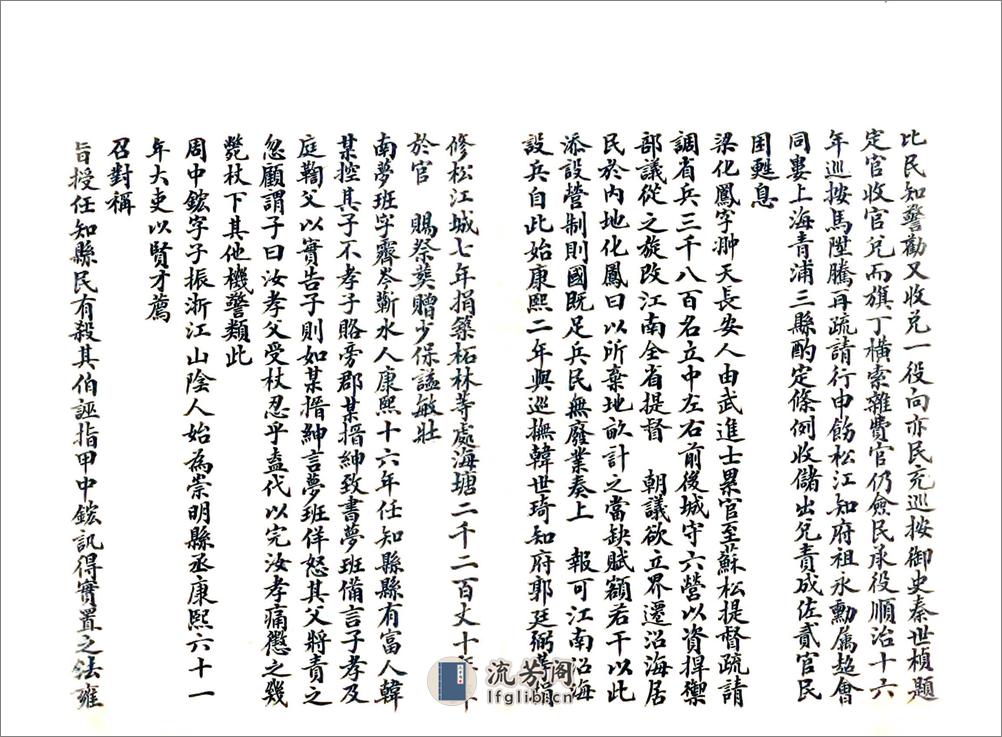 比民知警勸又收兌一役向亦民充巡按御史秦世禎題
定官收官兌而旗丁橫索雜費官仍僉民承役順治十六
年巡按馬陞騰再疏請行申飭松江知府祖永勳属趙會
同婁上海青浦三縣酌定條例收儲出兌責成佐貳官民
困甦息
梁化鳳字翀天長安人由武進士累官至蘇松提督疏請
調省兵三千八百名立中左右前後城守六營以資捍禦
部議從之旋改江南全省提督 朝議欲立界遷沿海居
民於内地化鳳曰以所棄地畝計之當缺賦額若干以此
添設營制則國既足兵民無廢業奏上 報可江南沿海
設兵自此始康熙二年與巡撫韓世琦知府郭廷弼等
修松江城七年捐築柘林等處海塘二千二百丈十
於官 賜祭葵贈少保諡敏壯
南夢班字齋岑蘄水人康熙十六年任知縣縣有富人韓
某控其子不孝子賂旁郡某搢紳致書夢班備言子孝及
庭鞫父以實告子則如某搢紳言夢班佯怒其父將責之
忽顧謂子曰汝孝父受杖忍乎盍代以完汝孝痛懲之幾
斃杖下其他機警類此
周中鋐字子振浙江山陰人始為崇明縣丞康熙六十一
年大吏以賢才薦
召對稱
旨授任知縣民有殺其伯誣指甲中鋐訊得實置之法雍
流芳阁
lfglib.cn